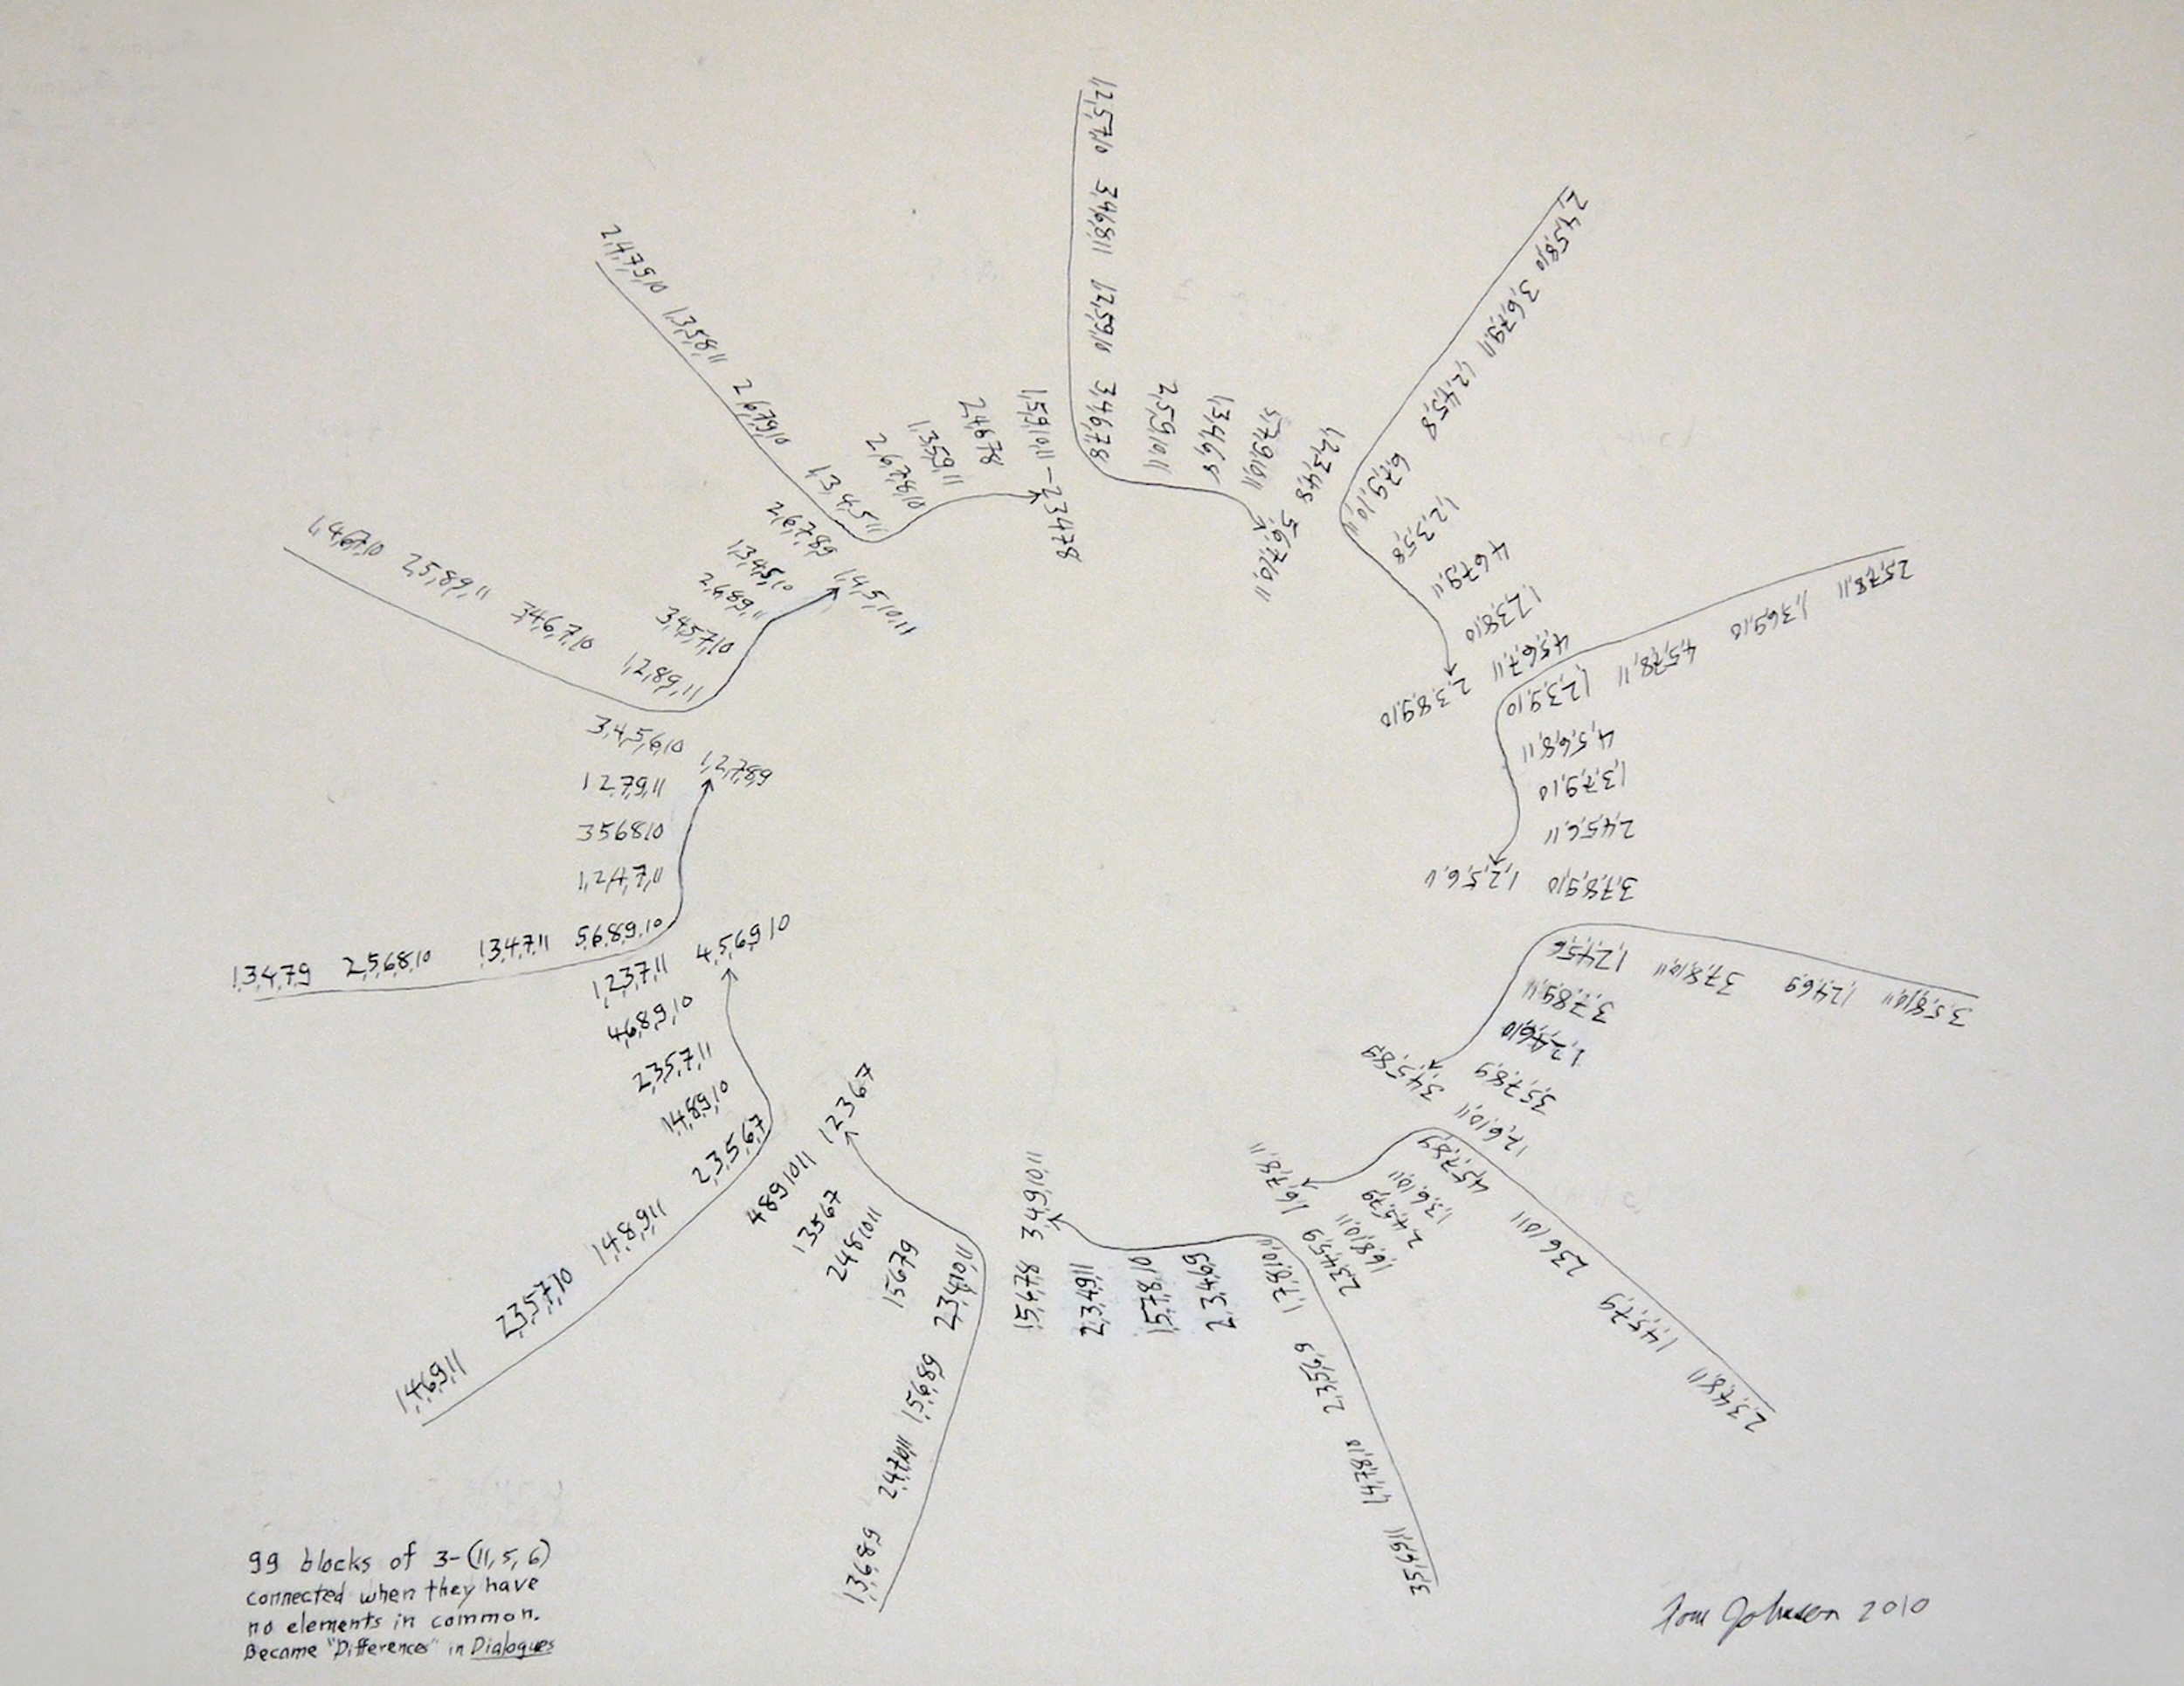 1,2,5,7,10
3,4,6,8,11
1,2,5,9,10
3,4,6,7,8
2,5,9,10,11
1,3,4,6,8
5,7,9,10,11
1,2,3,4,8
5,6,7,10,11
2,4,5,8,10
3,6,7,9,11
1,2,4,5,8
6,7,9,10,11
1,2,3,5,8
4,6,7,9,11
1,2,3,8,10
4,5,6,7,11
2,3,8,9,10
2,5,7,8,11
1,3,6,9,10
4,5,7,8,11
1,2,3,9,10
4,5,6,8,11
1,3,7,9,10
2,4,5,6,11
3,7,8,9,10
1,2,5,6,11
3,5,8,10,11
1,2,4,6,9
3,7,8,10,11
1,2,4,5,6
3,7,8,9,11
1,2,4,6,10
3,5,7,8,9
1,2,6,10,11
3,4,5,8,9
2,3,6,8,11
1,4,5,7,9
2,3,6,10,11
4,5,7,8,9
1,3,6,10,11
2,4,5,7,9
1,6,8,10,11
2,3,4,5,9
1,6,7,8,11
3,5,6,9,11
1,4,7,8,10
2,3,5,6,9
1,7,8,10,11
2,3,4,6,9
1,5,7,8,10
2,3,4,9,11
1,5,6,7,8
3,4,9,10,11
1,3,6,8,9
2,4,7,10,11
1,5,6,8,9
2,3,4,10,11
1 5 6 7 9
2 4 8 10 11
1 3 5 6 7
4 8 9 10 11
1 2 3 6 7
1,4,6,9,11
2,3,5,7,10
1,4,8,9,11
2,3,5,6,7
1,4,8,9,10
2,3,5,7,11
4,6,8,9,10
1,2,3,7,11
4,5,6,9,10
1,3,4,7,9
2,5,6,8,10
1,3,4,7,11
5,6,8,9,10
1,2,4,7,11
3 5 6 8 10
1 2,7,9,11
3,4,5,6,10
1,2,7,8,9
1,4,6,7,10
2,5,8,9,11
3,4,6,7,10
1,2,8,9,11
3,4,5,7,10
2,6,8,9,11
1,3,4,5,10
2,6,7,8,9
1,4,5,10,11
2,4,7,9,10
1,3,5,8,11
2,6,7,9,10
1,3,4,5,11
2,6,7,8,10
1,3,5,9,11
2,4,6,7,8
1,5,9,10,11 – 2 3 4 7 8
99 blocks of 3-(11, 5, 6)
connected when they have
no elements in common.
Became "Differences" in Dialogues
Tom Johnson 2010